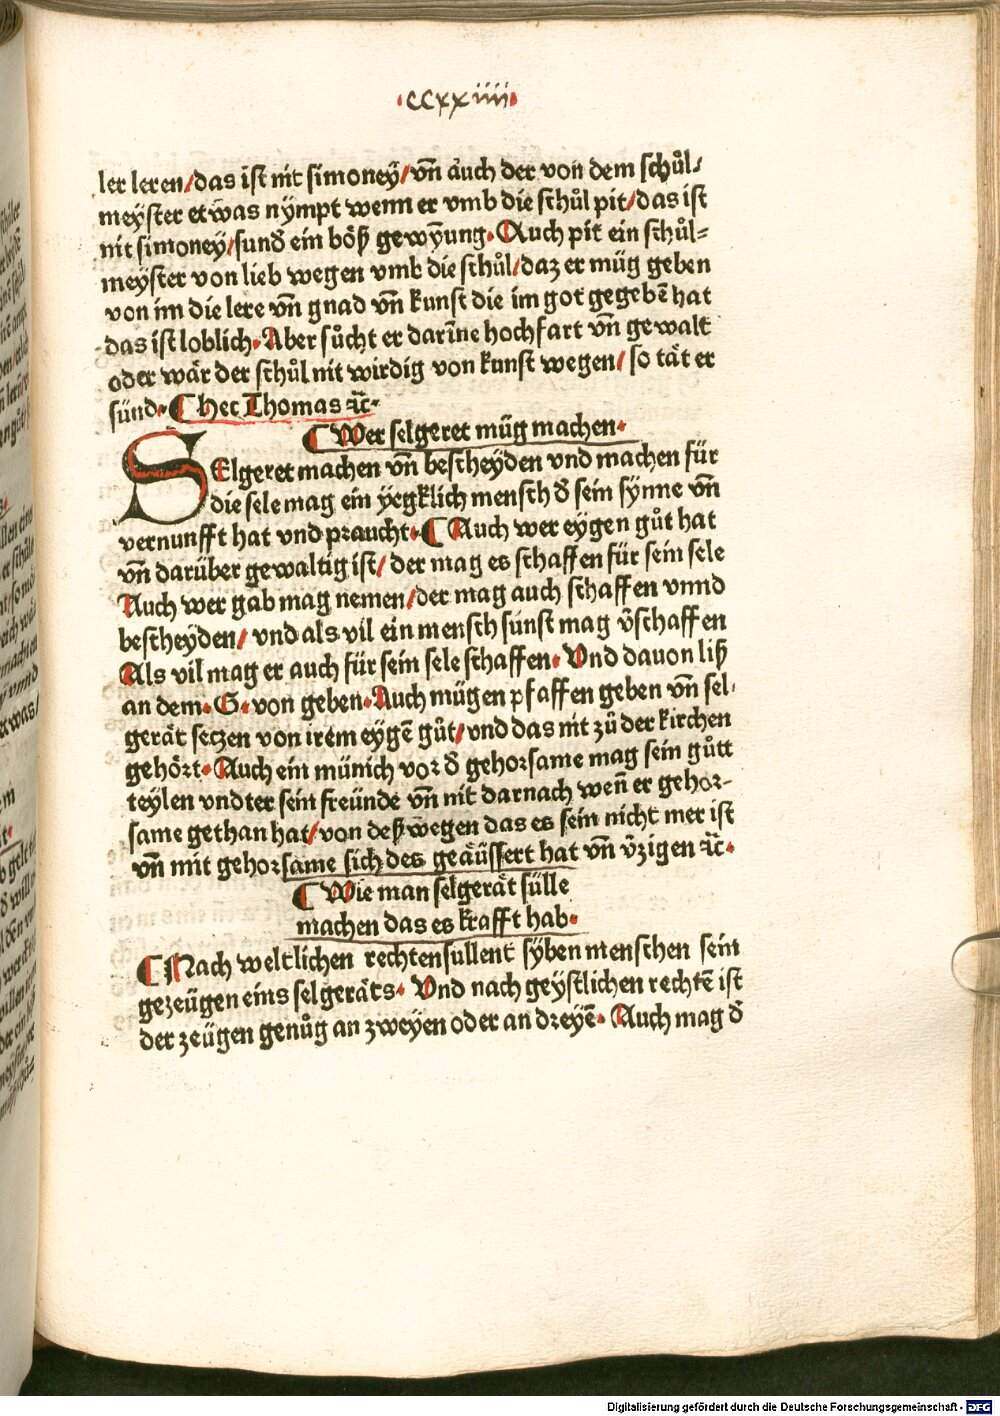 ·ccxxiiii·
ler leren/das ist nit simoney/vn̄ auch der von dem schůl/
meyster etwas nympt wenn er vmb die schůl pit/das ist
nit simoney/sunđ ein böß gewȳung. Auch pit ein schůl=
meyster von lieb wegen vmb die schůl/daz er müg geben
von im die lere vn̄ gnad vn̄ kunst die im got gegebē hat
das ist loblich. Aber sůcht er darīne hochfart vn̄ gewalt
oder wär der schůl nit wirdig von kunst wegen/ so tät er
sünd. ¶ hec Thomas ⁊c̄.
¶ Wer selgeret müg machen.
SElgeret machen vn̄ bescheyden vnd machen für
die sele mag ein yegklich mensch đ sein synne vn̄
vernunfft hat vnd praucht. ¶ Auch wer eygen gůt hat
vn̄ darüber gewaltig ist/ der mag es schaffen für sein sele
Auch wer gab mag nemen/der mag auch schaffen vnnd
bescheyden/ vnd als vil ein mensch sunst mag v̄schaffen
Als vil mag er auch für sein sele schaffen. Vnd dauon liß
an dem. G. von geben. Auch mügen pfaffen geben vn̄ sel/
gerät seczen von irem eygē gůt/vnd das nit zů der kirchen
gehört. Auch ein münich vor đ gehorsame mag sein gůtt
teylen vndter sein freünde vn̄ nit darnach wen̄ er gehor-
same gethan hat/von deß wegen das es sein nicht mer ist
vn̄ mit gehorsame sich des geäüssert hat vn̄ v̄zigen ⁊c̄.
¶ Wie man selgerät sülle
machen das es krafft hab.
¶ Nach weltlichen rechten sullent syben menschen sein
gezeügen eins selgeräts. Vnd nach geystlichen rechtē ist
der zeügen genůg an zweyen oder an dreyē. Auch mag đ
Digitalisierung gefördert durch die Deutsche Forschungsgemeinschaft - DFG